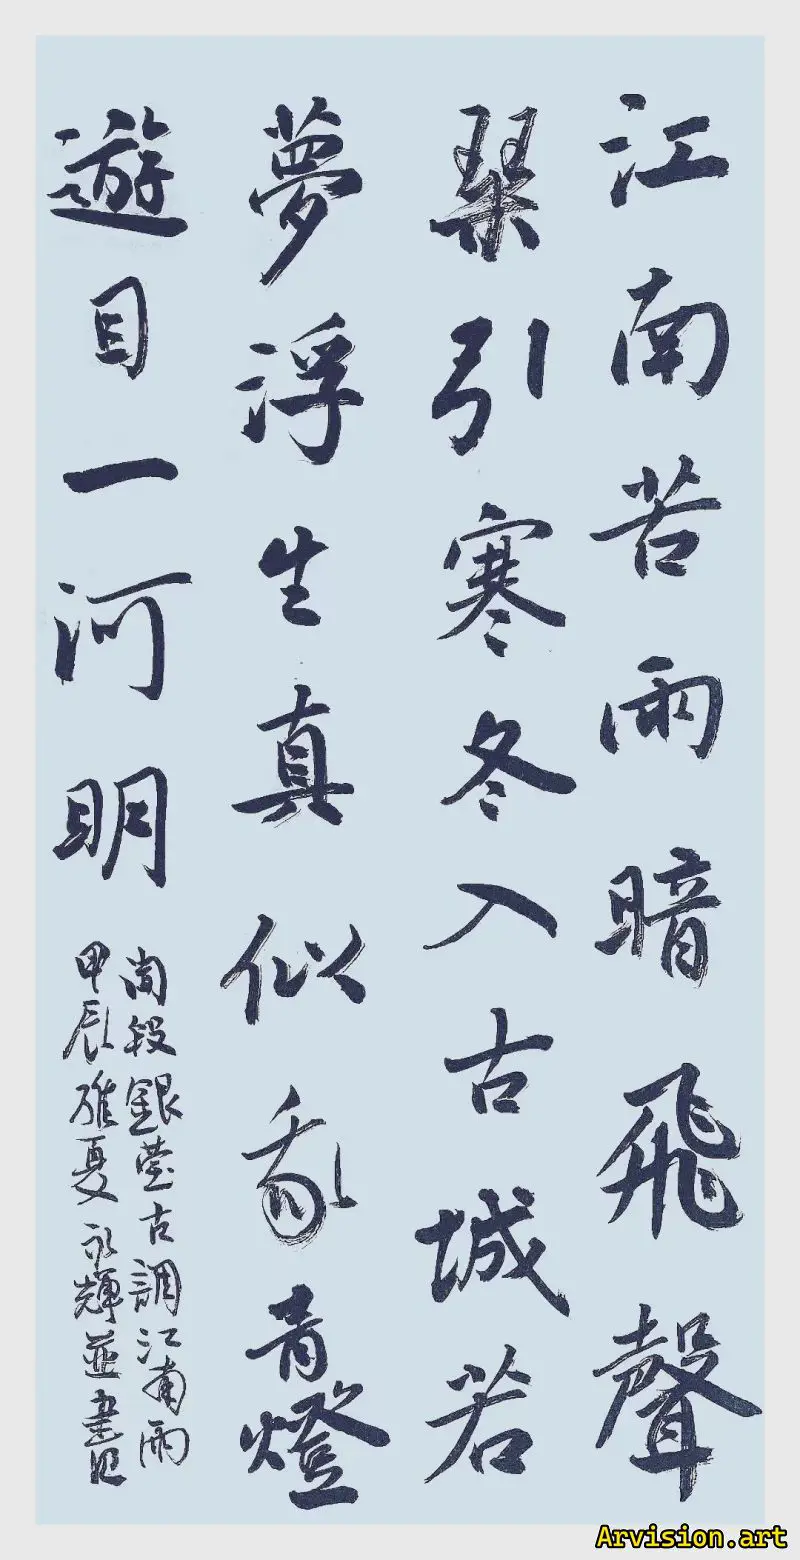 江南苦雨暗飛聲
琹引寒冬入古城若
夢浮生真似亂青燈
遊目一河明
段銀瑩古調江南雨
甲辰夏永輝並書
Arvision.art